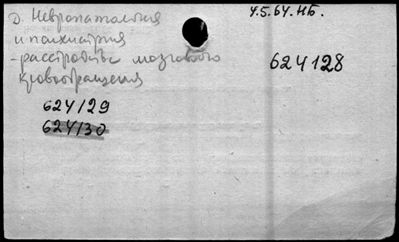 4.5.64. НБ.
Д. Невропатология
и психиатрия
- расстройства мозгового
кровообращения
624128
624129
624130